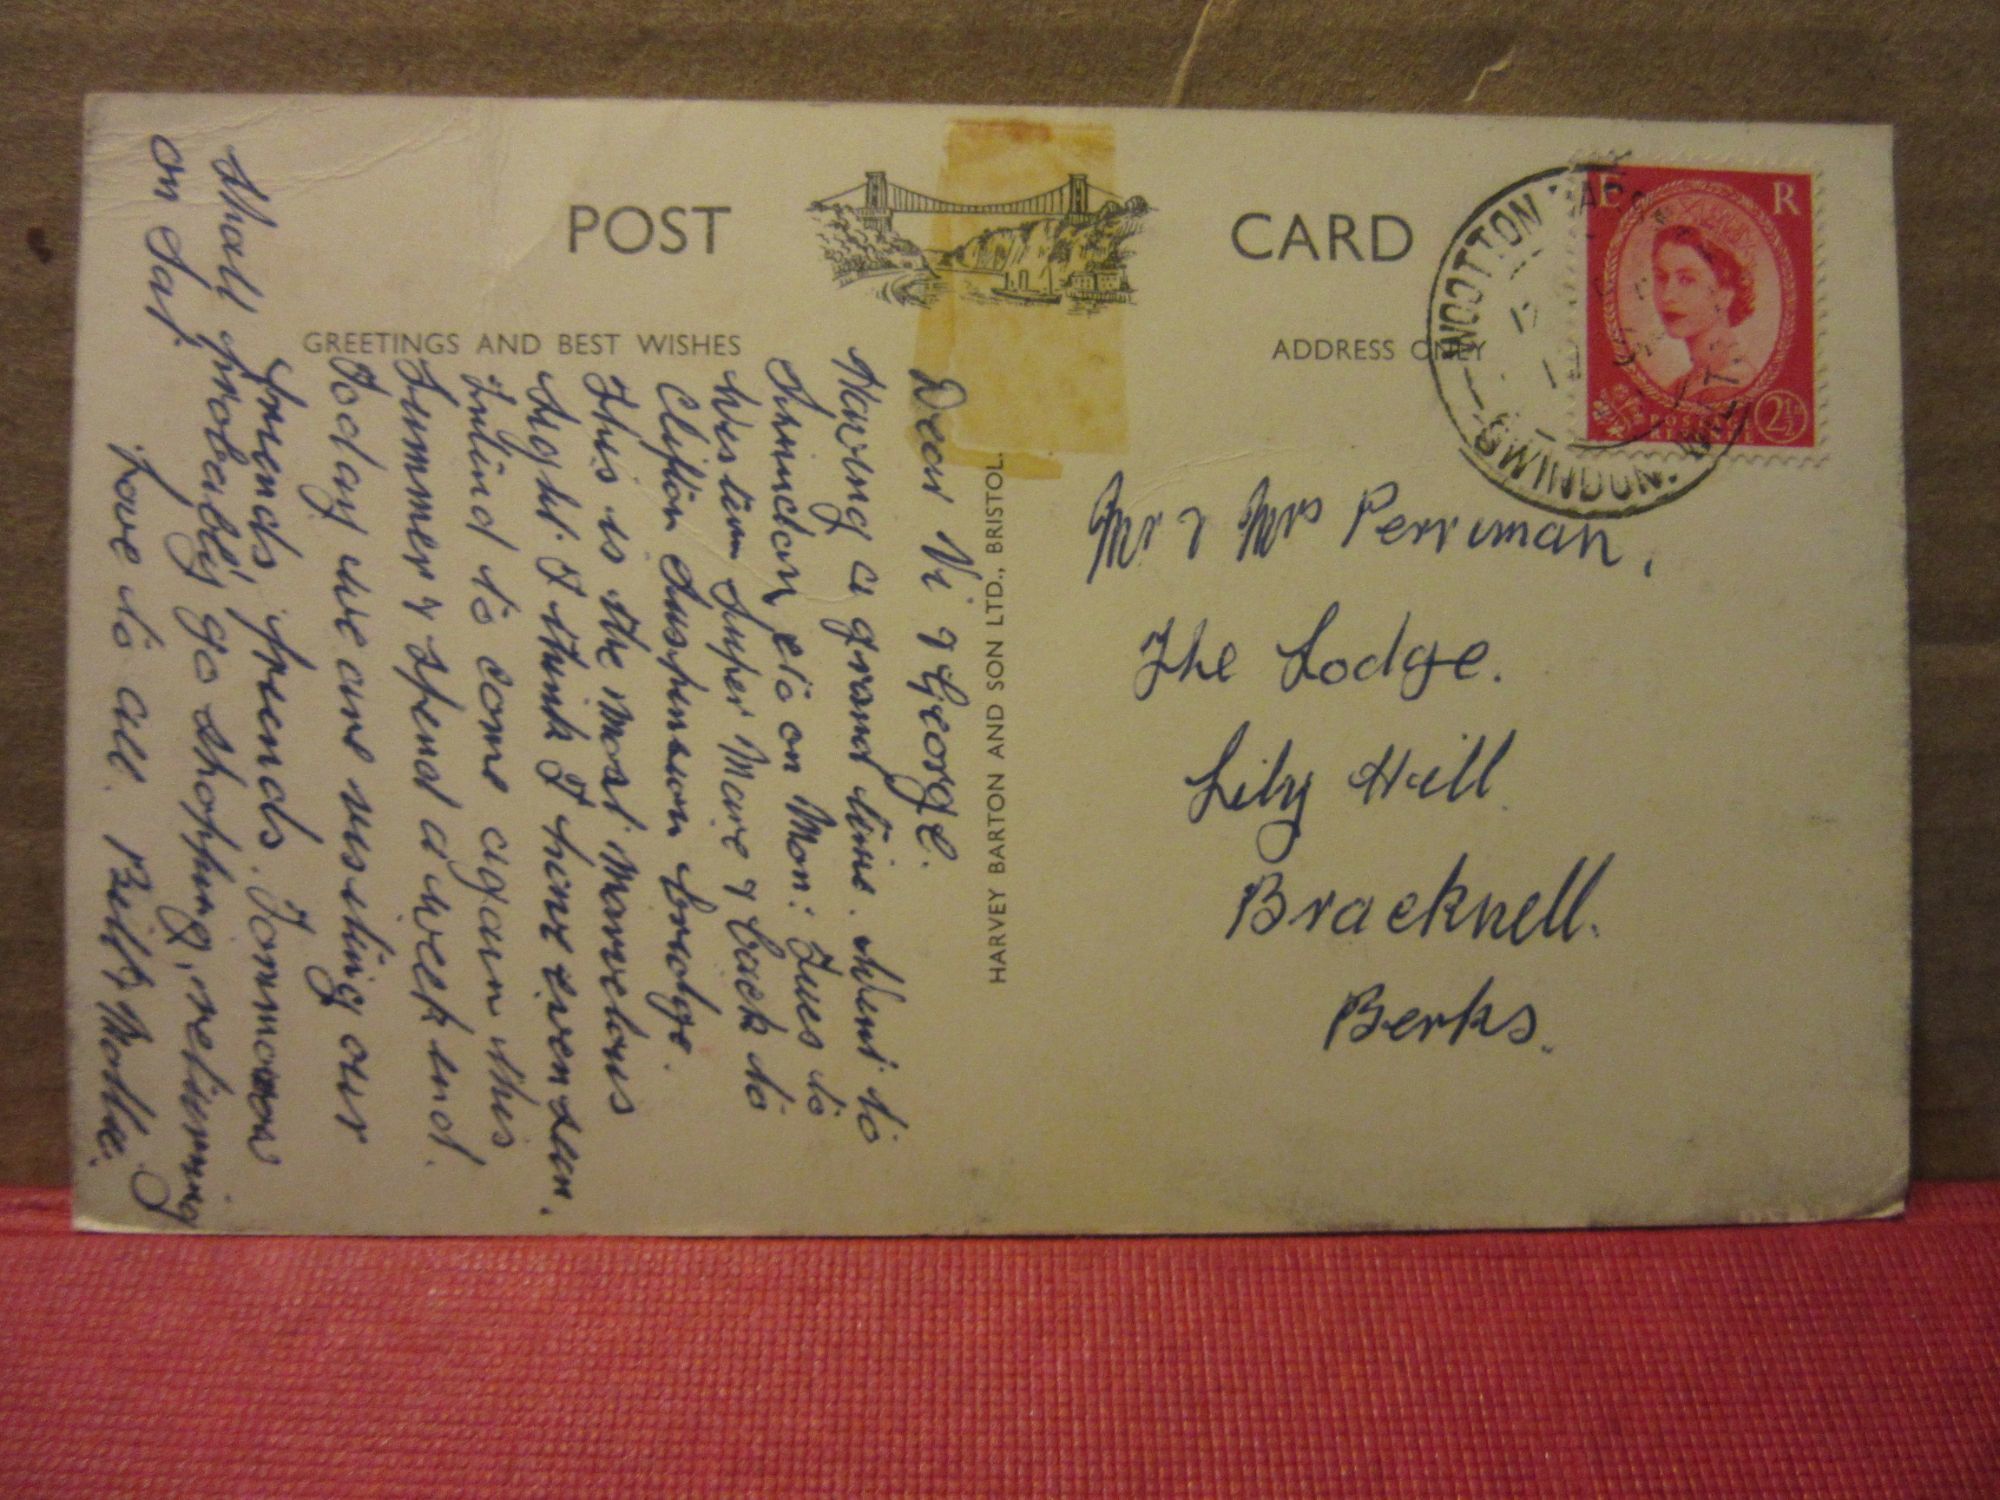 POST CARD
GREETINGS AND BEST WISHES
ADDRESS ONLY
Dear Vi & George.
Having a grand time. Went to
Swindon etc on Mon: Tues to
Western Super Mare & back to
Clifton Suspension bridge.
This is the most marvelous
sight. I think I have ever seen.
Intend to come again this
Summer & spend a week end.
Today we are visiting our
friends, friends. Tommorow
shall probably go shopping, returning
on Sat.
Love to all. Bill & Mollie.
HARVEY BARTON AND SON LTD., BRISTOL.
Mr & Mrs Perriman,
The Lodge.
Lily Hill
Bracknell.
Berks.
E R
POSTAGE
REVENUE
2½D
SWINDON.